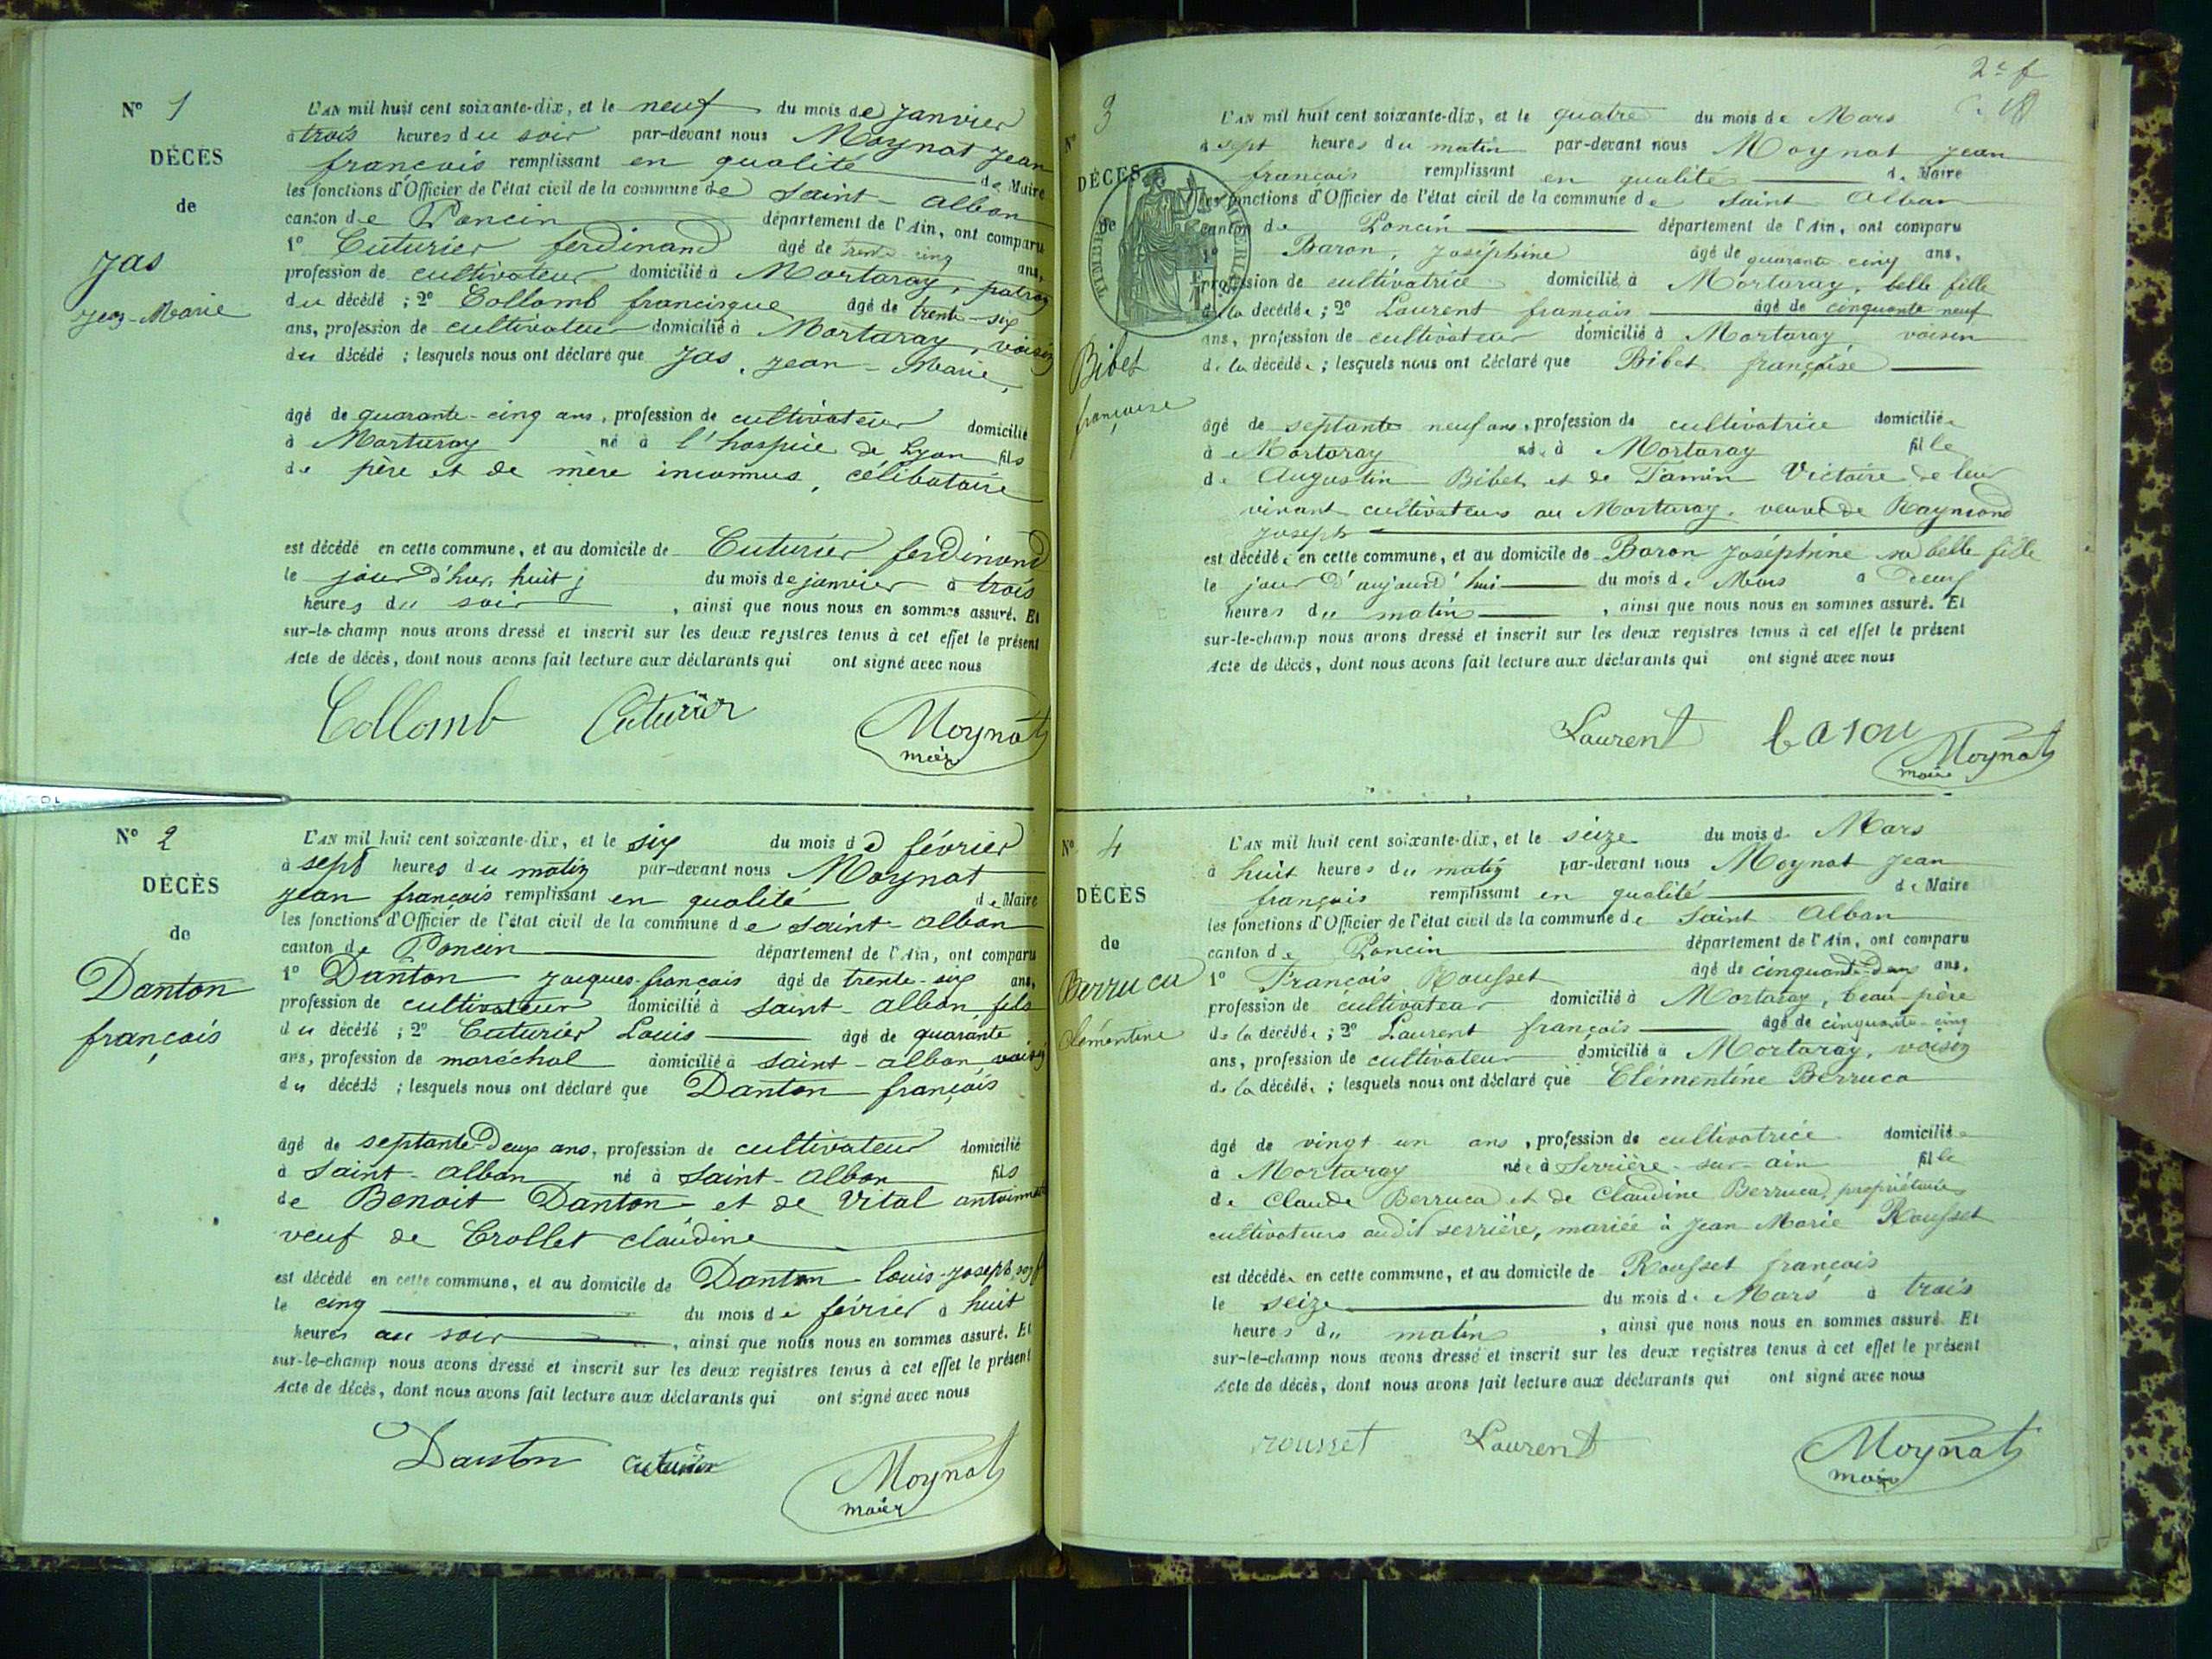 N° 1
DÉCÈS
de
Jas
Jean-Marie
L'AN mil huit cent soixante-dix, et le neuf du mois de janvier
à trois heures du soir par-devant nous Moynat Jean
françois remplissant en qualité de Maire
les fonctions d'Officier de l'état civil de la commune de Saint-Alban
canton de Poncin département de l'Ain, ont comparu
1° Cuturier ferdinand âgé de trente cinq ans,
profession de cultivateur domicilié à Mortaray, patron
du décédé ; 2° Collomb francisque âgé de trente-six
ans, profession de cultivateur domicilié à Mortaray, voisin
du décédé ; lesquels nous ont déclaré que Jas, Jean-Marie,
âgé de quarante-cinq ans, profession de cultivateur domicilié
à Mortaray né à l'hospice de Lyon fils
de père et de mère inconnus, célibataire
est décédé en cette commune, et au domicile de Cuturier ferdinand
le jour d'hier, huit du mois de janvier à trois
heures du soir, ainsi que nous nous en sommes assuré. Et
sur-le-champ nous avons dressé et inscrit sur les deux registres tenus à cet effet le présent
Acte de décès, dont nous avons fait lecture aux déclarants qui ont signé avec nous
Collomb Cuturier Moynat
maire
N° 2
DÉCÈS
de
Danton
françois
L'AN mil huit cent soixante-dix, et le six du mois de février
à sept heures du matin par-devant nous Moynat
Jean françois remplissant en qualité de Maire
les fonctions d'Officier de l'état civil de la commune de Saint-Alban
canton de Poncin département de l'Ain, ont comparu
1° Danton Jacques-françois âgé de trente-six ans,
profession de cultivateur domicilié à Saint-Alban, fils
du décédé ; 2° Cuturier Louis âgé de quarante
ans, profession de maréchal domicilié à Saint-Alban voisin
du décédé ; lesquels nous ont déclaré que Danton françois
âgé de septante-deux ans, profession de cultivateur domicilié
à Saint-Alban né à Saint-Alban fils
de Benoit Danton et de Vital antoinette
veuf de Crollet claudine
est décédé en cette commune, et au domicile de Danton louis-joseph, son f
le cinq du mois de février à huit
heures au soir, ainsi que nous nous en sommes assuré. Et
sur-le-champ nous avons dressé et inscrit sur les deux registres tenus à cet effet le présent
Acte de décès, dont nous avons fait lecture aux déclarants qui ont signé avec nous
Danton Cuturier Moynat
maire
2e f
N° 3
DÉCÈS
de
Bibet
françoise
L'AN mil huit cent soixante-dix, et le quatre du mois de Mars
à sept heures du matin par-devant nous Moynat Jean
françois remplissant en qualité de Maire
les fonctions d'Officier de l'état civil de la commune de Saint Alban
canton de Poncin département de l'Ain, ont comparu
1° Baron, Joséphine âgé de quarante cinq ans,
profession de cultivatrice domicilié à Mortaray, belle fille
de la décédée ; 2° Laurent françois âgé de cinquante neuf
ans, profession de cultivateur domicilié à Mortaray, voisin
de la décédée ; lesquels nous ont déclaré que Bibet françoise
âgé de septante neuf ans, profession de cultivatrice domiciliée
à Mortaray née à Mortaray fille
de Augustin Bibet et de Tamin Victoire de leur
vivant cultivateurs au Mortaray, veuve de Raymond
Joseph
est décédée en cette commune, et au domicile de Baron Joséphine sa belle fille
le jour d'aujourd'hui du mois de Mars à deux
heures du matin, ainsi que nous nous en sommes assuré. Et
sur-le-champ nous avons dressé et inscrit sur les deux registres tenus à cet effet le présent
Acte de décès, dont nous avons fait lecture aux déclarants qui ont signé avec nous
Laurent baron Moynat
maire
N° 4
DÉCÈS
de
Berruca
Clémentine
L'AN mil huit cent soixante-dix, et le seize du mois de Mars
à huit heures du matin par-devant nous Moynat Jean
françois remplissant en qualité de Maire
les fonctions d'Officier de l'état civil de la commune de Saint Alban
canton de Poncin département de l'Ain, ont comparu
1° François Rousset âgé de cinquante-deux ans,
profession de cultivateur domicilié à Mortaray, beau-père
de la décédée ; 2° Laurent françois âgé de cinquante-cinq
ans, profession de cultivateur domicilié à Mortaray, voisin
de la décédée ; lesquels nous ont déclaré que Clémentine Berruca
âgé de vingt un ans, profession de cultivatrice domiciliée
à Mortaray née à Serrière-sur-ain fille
de Claude Berruca et de Claudine Berruca, propriétaires
cultivateurs audit serrière, mariée à Jean Marie Rousset
est décédée en cette commune, et au domicile de Rousset françois
le seize du mois de Mars à trois
heures du matin, ainsi que nous nous en sommes assuré. Et
sur-le-champ nous avons dressé et inscrit sur les deux registres tenus à cet effet le présent
Acte de décès, dont nous avons fait lecture aux déclarants qui ont signé avec nous
rousset Laurent Moynat
maire